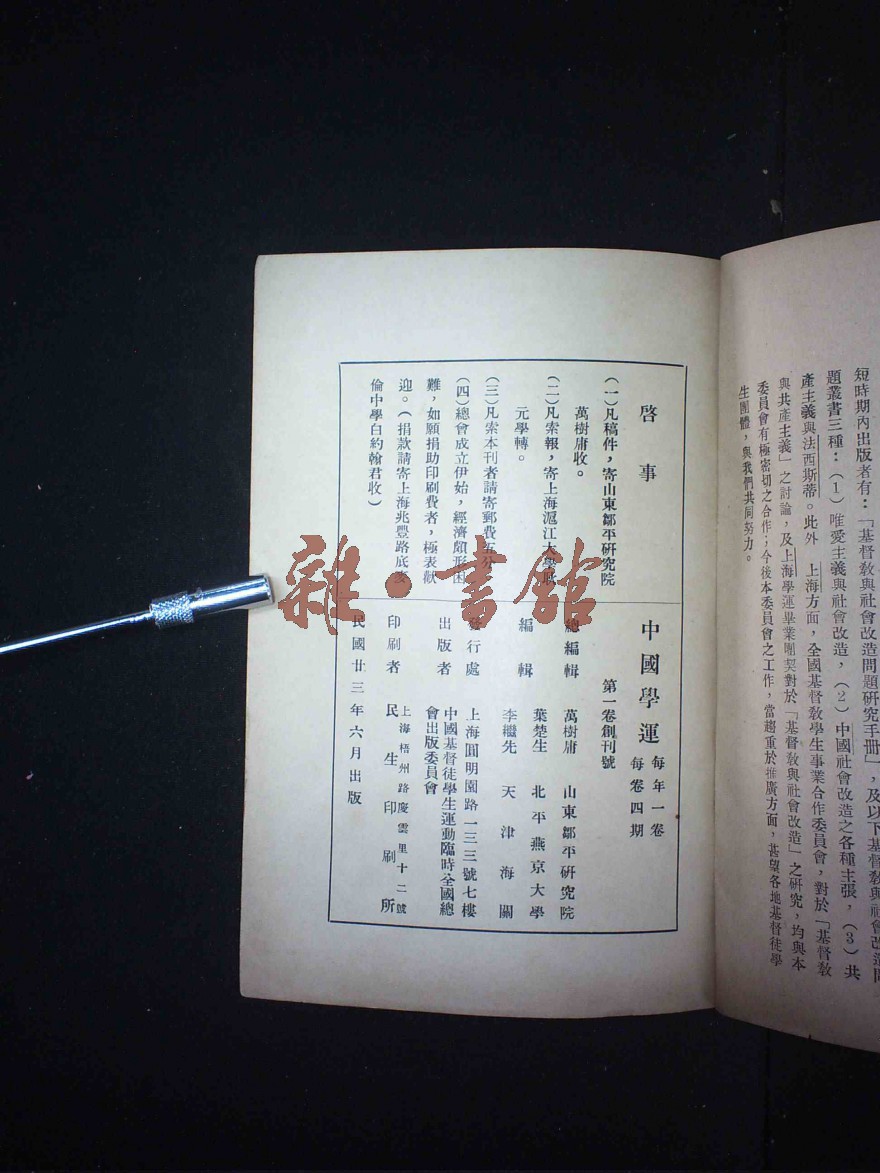 短時期內出版者有：「基督敎與社會改造問題研究手冊」，及以下基督敎與社會改造問
題叢書三種：（1）唯愛主義與社會改造，（2）中國社會改造之各種主張，（3）共
產主義與法西斯蒂。此外　上海方面，全國基督敎學生事業合作委員會，對於「基督敎
與共產主義」之討論，及上海學運畢業團契對於「基督敎與社會改造」之研究，均與本
委員會有極密切之合作；今後本委員會之工作，當趨重於推廣方面，甚望各地基督徒學
生團體，與我們共同努力。
啓事
（一）凡稿件，寄山東鄒平研究院
萬樹庸收。
（二）凡索報，寄上海滬江大學
元學轉。
（三）凡索本刊者請寄郵費五分
（四）總會成立伊始，經濟頗形困
難，如願捐助印刷費者，極表歡
迎。（捐款請寄上海兆豐路底麥
倫中學白約翰君收）
中國學運
每年一卷
每卷四期
第一卷創刊號
總編輯　萬樹庸　山東鄒平研究院
編輯　葉楚生　北平燕京大學
李繼先　天津海關
發行處　上海圓明園路一三三號七樓
出版者　中國基督徒學生運動臨時全國總
會出版委員會
印刷者　民生印刷所
上海梧州路慶雲里十二號
民國廿三年六月出版
雜·書館